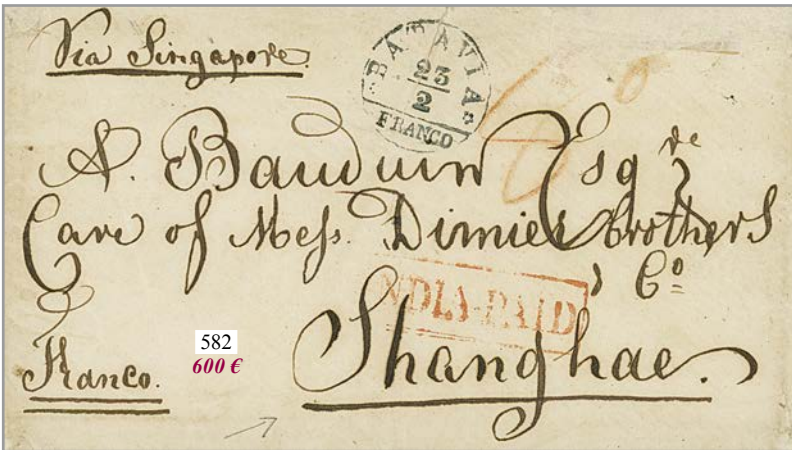 Via Singapore.
BATAVIA
23
2
FRANCO
A. Bauduin Esqre
Care of Mess. Dimier brothers
& Co
INDIA PAID
Shanghae.
Franco.
582
600 €